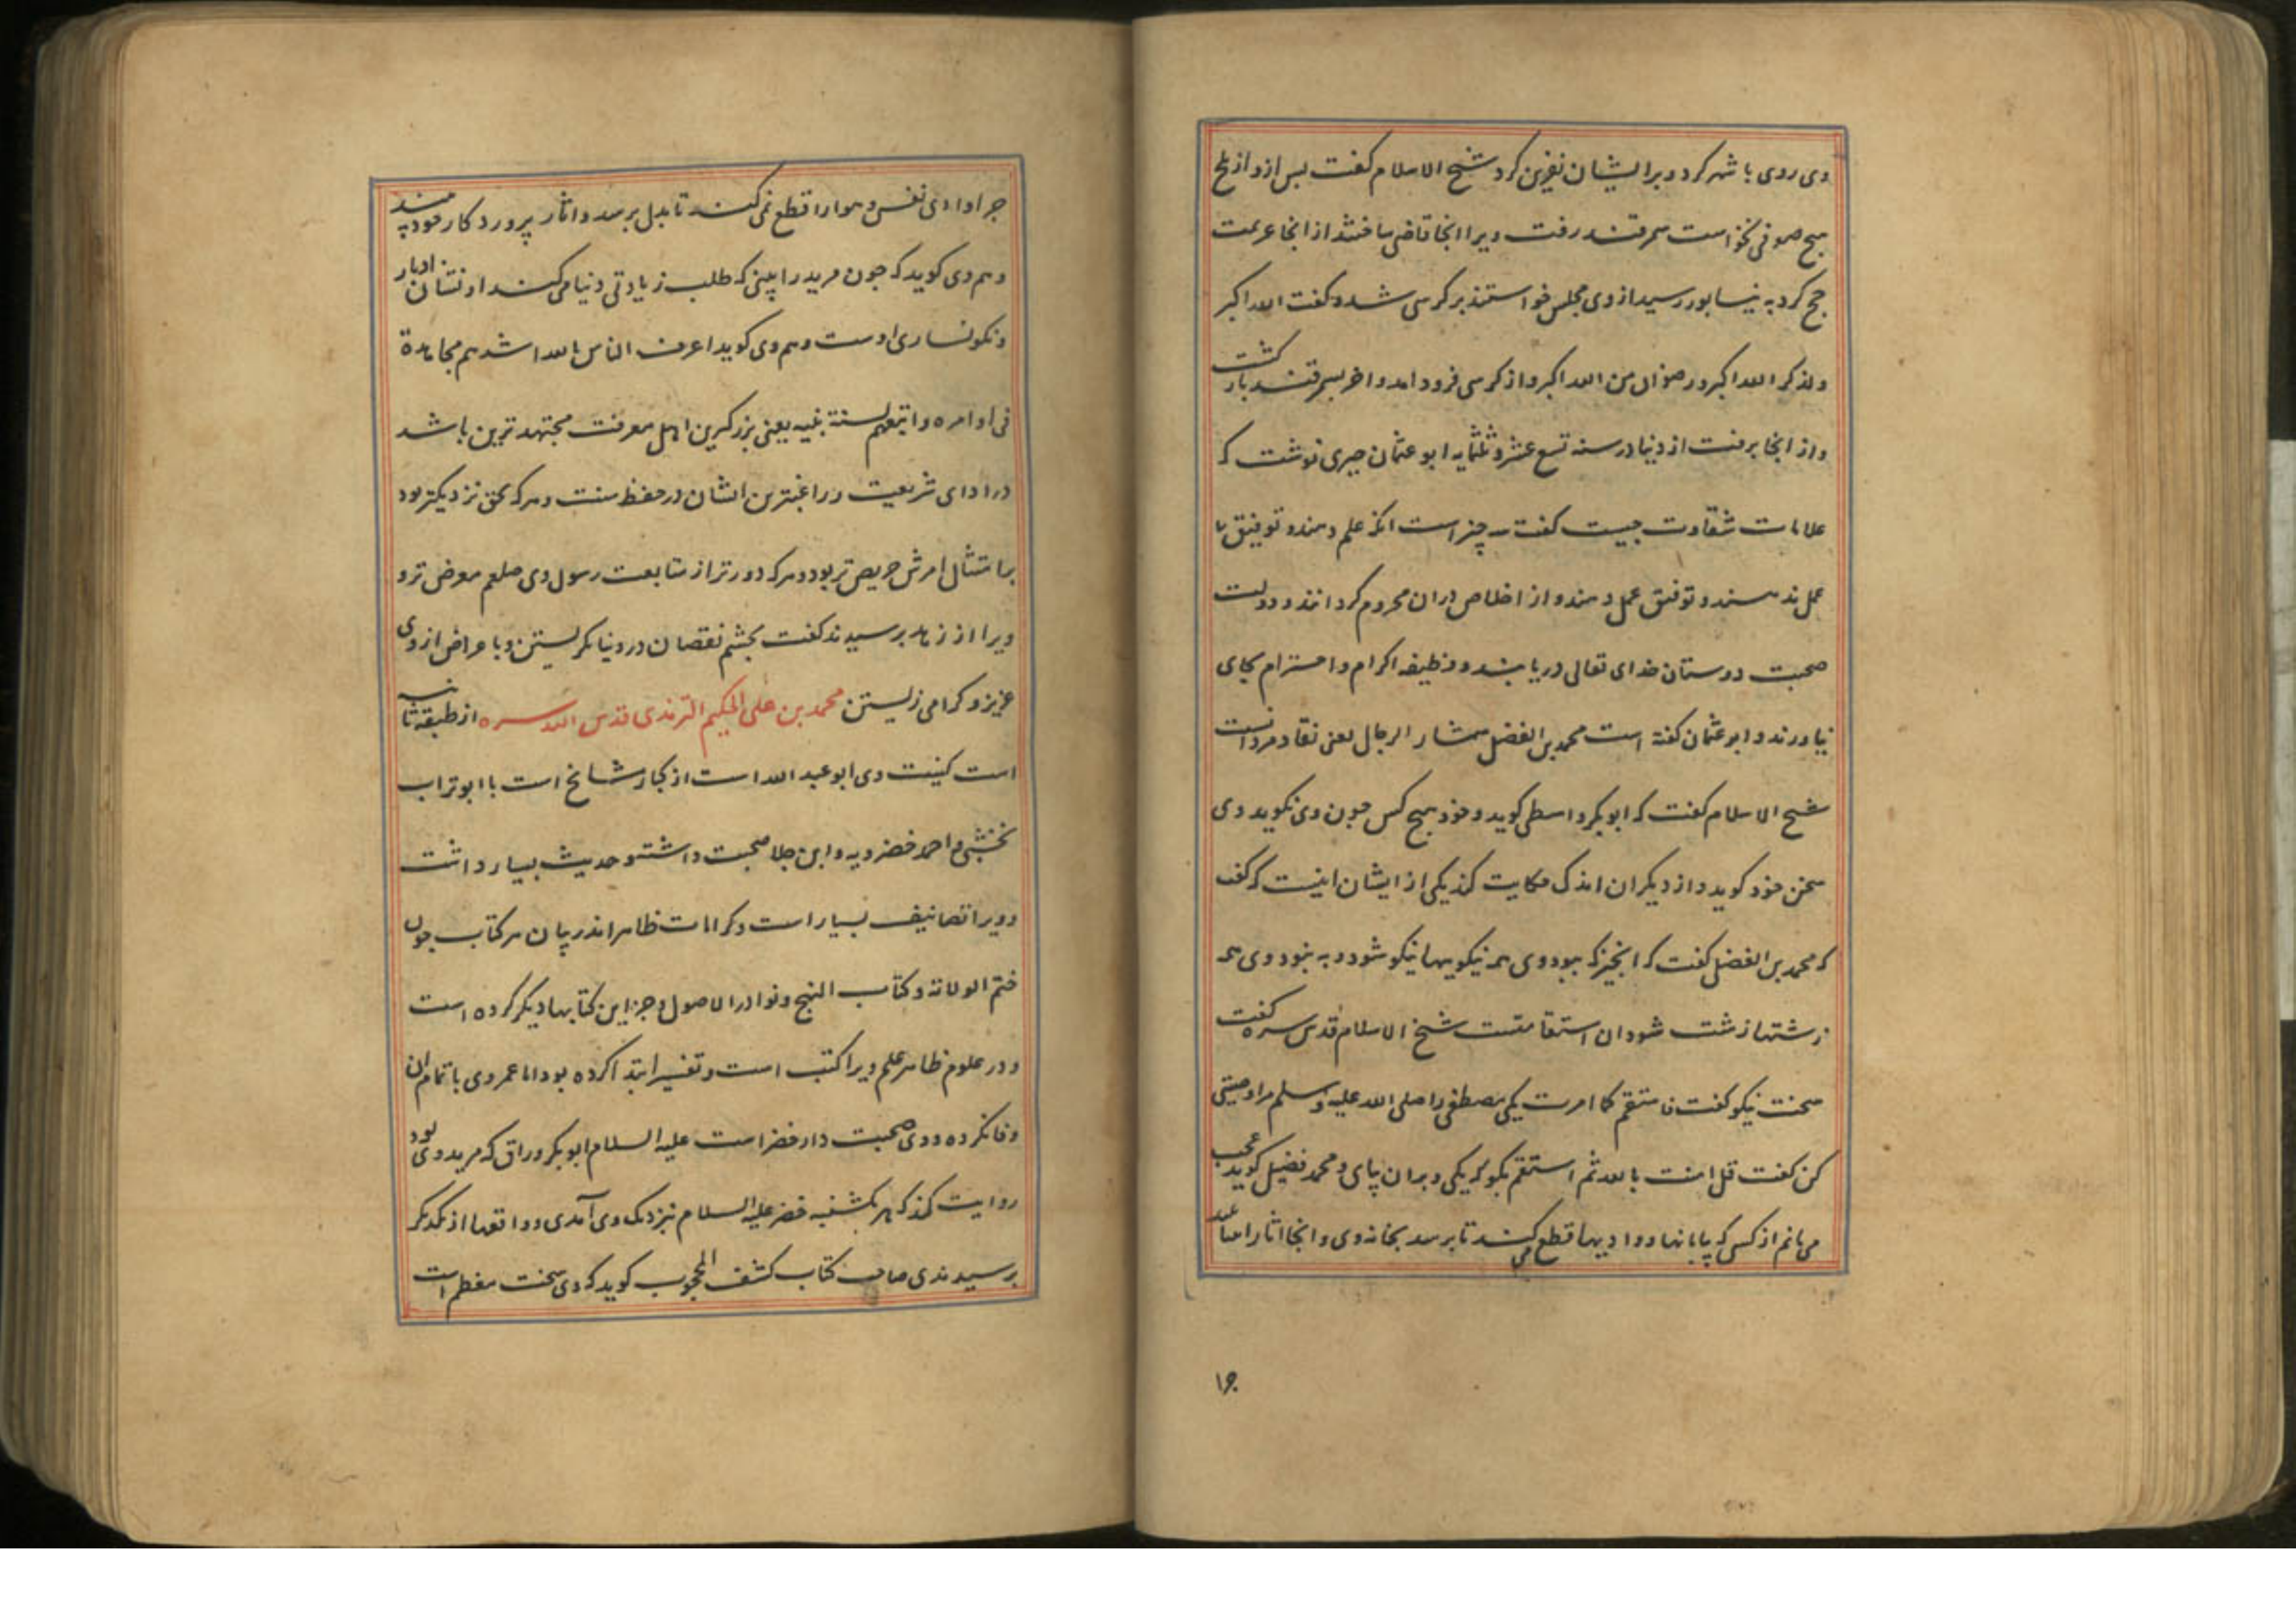 وی روی با شهر کرد و بر ایشان نفرین کرد شیخ الاسلام گفت پس ازو از بلخ
هیچ صوفی نخواست سمرقند رفت ویرا انجا قاضی ساختند از انجا عزیمت
حج کرد به نیسابور رسید از وی مجلس خواستند بر کرسی شد و گفت الله اکبر
ولذکر الله اکبر ورضوان من الله اکبر و از کرسی فرود امد و اخر بسمرقند باز گشت
و از انجا برفت از دنیا در سنه تسع عشر و ثلثمایه ابو عثمان حیری نوشت که
علامات شقاوت چیست گفت سه چیز است انکه علم دهند و توفیق با
عمل ندهند و توفیق عمل دهند و از اخلاص دران محروم گردانند و دولت
صحبت دوستان خدای تعالی دریابند و وظیفه اکرام و احترام بجای
نیاورند و ابو عثمان گفته است محمد بن الفضل سمسار الرجال یعنی نقاد مردانست
شیخ الاسلام گفت که ابوبکر واسطی گوید و خود هیچ کس چون وی نگوید وی
سخن خود گوید و از دیگران اندک حکایت کند یکی از ایشان اینست که گفت
که محمد بن الفضل گفت که انچیز که ببود وی همه نیکویها نیکو شود و به نبود وی همه
زشتها زشت شود ان استقامتست شیخ الاسلام قدس سره گفت
سخت نیکو گفت فاستقم کما امرت یکی مصطفی را صلی الله علیه و سلم مرا وصیتی
کن گفت قل امنت بالله ثم استقم بگو که یکی و بران پای و محمد فضیل گوید عجب
می مانم از کسی که بیابانها و وادیها قطع می کند تا برسد بخانه وی و انجا اثار انبیا
چرا وادی نفس و هوا را قطع نمی کند تا بدل برسد و اثار پروردکار خود بیند
و هم وی کوید که چون مرید را بینی که طلب زیادتی دنیا می کند او نشان ادبار
و نکونساری اوست و هم وی کوید اعرف الناس بالله اشدهم مجاهدة
فی اوامره و اتبعهم لسنة نبیه یعنی بزرکترین اهل معرفت مجتهد ترین باشد
در ادای شریعت و راغبترین ایشان در حفظ سنت و هر که بحق نزدیکتر بود
بر امتثال امرش حریص تر بود و هر که دورتر از متابعت رسول وی صلعم معرض تر و
ویرا از زهد پرسیدند گفت بچشم نقصان در دنیا نکریستن و با عراض از وی
عزیز و کرامی زیستن محمد بن علی الحکیم الترمذی قدس الله سره از طبقه ثانیه
است کنیت وی ابو عبد الله است از کبار مشایخ است با ابو تراب
نخشبی و احمد خضرویه و ابن جلا صحبت داشته و حدیث بسیار داشت
و ویرا تصانیف بسیار است و کرامات ظاهر اندر بیان هر کتاب چون
ختم الولایة و کتاب النهج و نوادر الاصول و جز این کتابها دیکر کرده است
و در علوم ظاهر علم ویرا کتب است و تفسیر ابتدا کرده بود اما عمر وی با تمام ان
وفا نکرده و وی صحبت دار خضر است علیه السلام ابو بکر وراق که مرید وی بود
روایت کند که هر یکشنبه خضر علیه السلام نزدیک وی آمدی و واقعها از یکدیکر
پرسیدندی صاحب کتاب کشف المحجوب کوید که وی سخت معظم است
۱۶